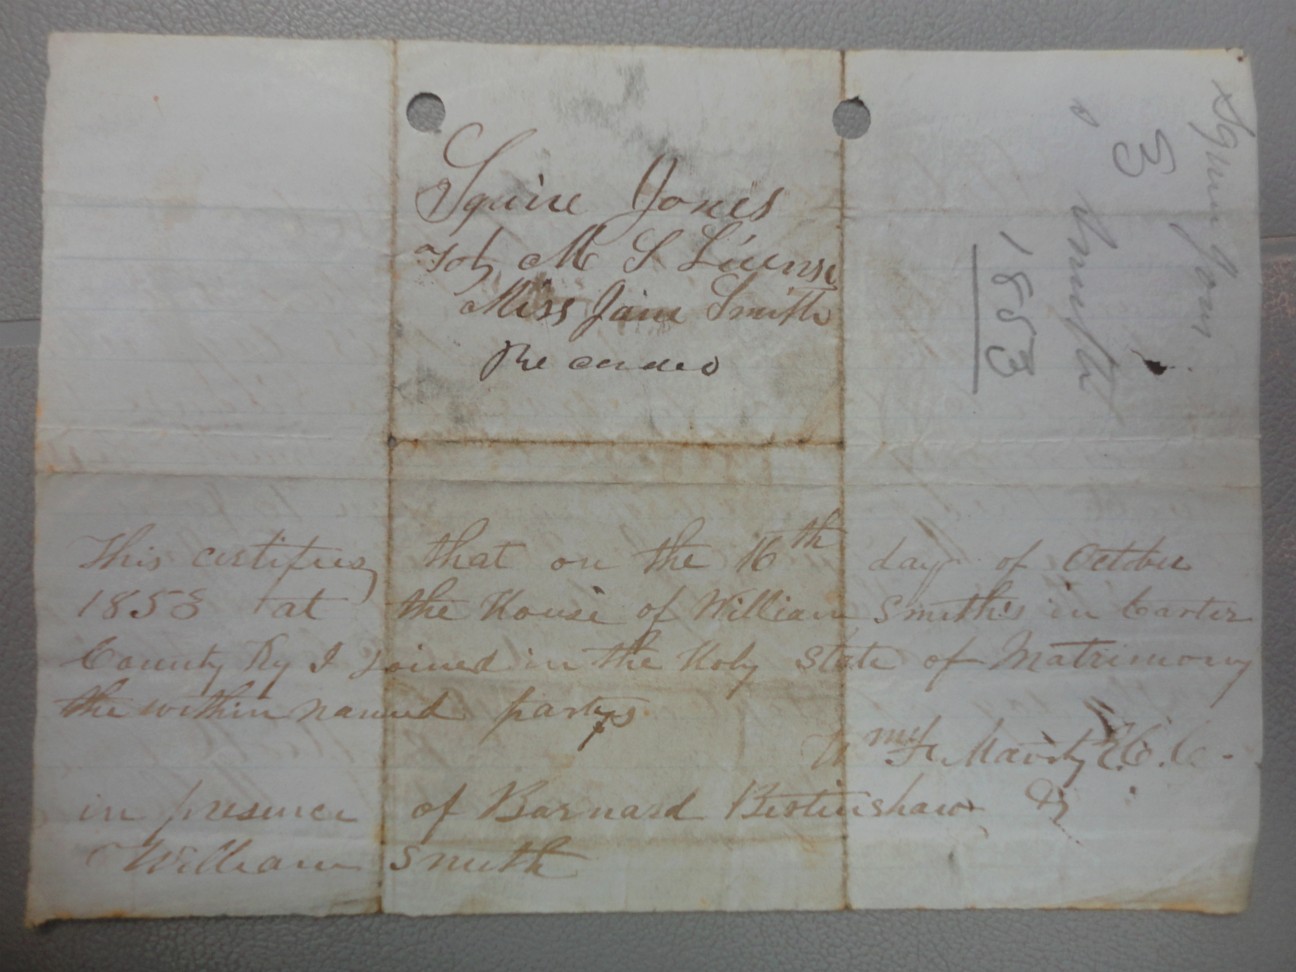 Squire Jones
To M S Licens
Miss Jane Smith
Recorded
Squire Jones
&
Smith
1853
This certifies that on the 16th day of October
1853 at the House of William Smith's in Carter
County Ky I joined in the Holy State of Matrimony
the within named partys
Wm
in presence of Barnard &
William Smith